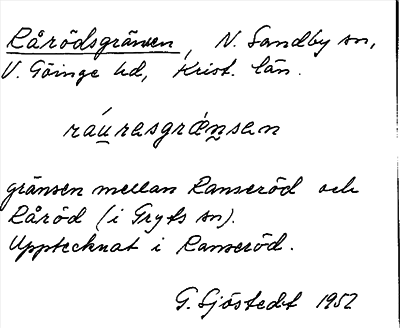 Rårödsgränsen, N. Sandby sn,
V. Göinge hd, Krist. län.
ráu̲rasgrǽn̲san
gränsen mellan Ranseröd och
Råröd (i Gryts sn).
Upptecknat i Ranseröd.
G. Sjöstedt 1952